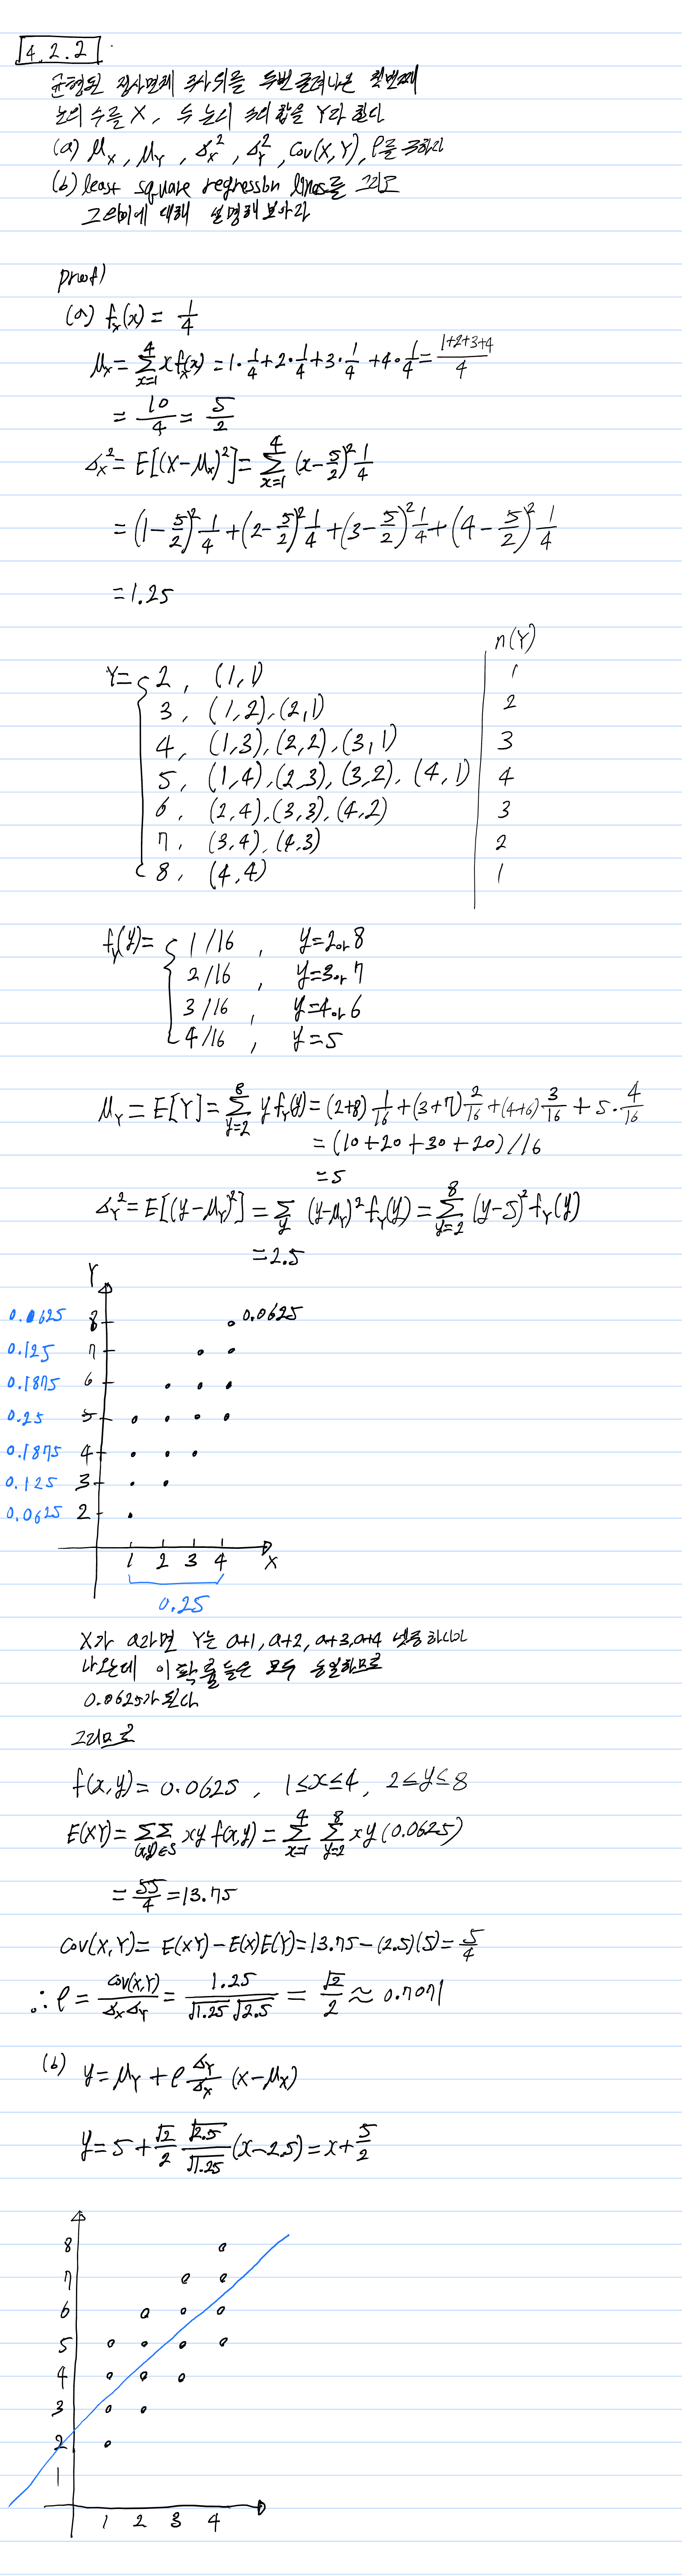 4.2.2
균형된 정사면체 주사위를 두번 굴려나온 첫번째
눈의 수를 X, 두 눈의 수의 합을 Y라 한다
(a) μ_X, μ_Y, σ_X², σ_Y², Cov(X,Y), ρ를 구하라
(b) least square regression lines를 그리고
그 의미에 대해 설명해 보아라
proof)
(a) f_X(x) = 1/4
μ_X = Σ_{x=1}^{4} x f_X(x) = 1·1/4 + 2·1/4 + 3·1/4 + 4·1/4 = (1+2+3+4)/4
= 10/4 = 5/2
σ_X² = E[(X-μ_X)²] = Σ_{x=1}^{4} (x-5/2)² 1/4
= (1-5/2)² 1/4 + (2-5/2)² 1/4 + (3-5/2)² 1/4 + (4-5/2)² 1/4
= 1.25
n(Y)
Y = { 2, (1,1) 1
3, (1,2), (2,1) 2
4, (1,3), (2,2), (3,1) 3
5, (1,4), (2,3), (3,2), (4,1) 4
6, (2,4), (3,3), (4,2) 3
7, (3,4), (4,3) 2
8, (4,4) 1
f_Y(y) = { 1/16, y=2 or 8
2/16, y=3 or 7
3/16, y=4 or 6
4/16, y=5
μ_Y = E[Y] = Σ_{y=2}^{8} y f_Y(y) = (2+8) 1/16 + (3+7) 2/16 + (4+6) 3/16 + 5·4/16
= (10+20+30+20)/16
= 5
σ_Y² = E[(y-μ_Y)²] = Σ_y (y-μ_Y)² f_Y(y) = Σ_{y=2}^{8} (y-5)² f_Y(y)
= 2.5
Y
0.0625 8 0.0625
0.125 7
0.1875 6
0.25 5
0.1875 4
0.125 3
0.0625 2
1 2 3 4 X
0.25
X가 a라면 Y는 a+1, a+2, a+3, a+4 넷중 하나가
나오는데 이 확률들은 모두 동일하므로
0.0625가 된다
그러므로
f(x,y) = 0.0625, 1≤x≤4, 2≤y≤8
E(XY) = ΣΣ_{(x,y)∈S} xy f(x,y) = Σ_{x=1}^{4} Σ_{y=2}^{8} xy (0.0625)
= 55/4 = 13.75
Cov(X,Y) = E(XY) - E(X)E(Y) = 13.75 - (2.5)(5) = 5/4
∴ ρ = Cov(X,Y)/σ_Xσ_Y = 1.25/√1.25√2.5 = √2/2 ≈ 0.7071
(b) y = μ_Y + ρ σ_Y/σ_X (x-μ_X)
y = 5 + √2/2 √2.5/√1.25 (x-2.5) = x + 5/2
8
7
6
5
4
3
2
1
1 2 3 4